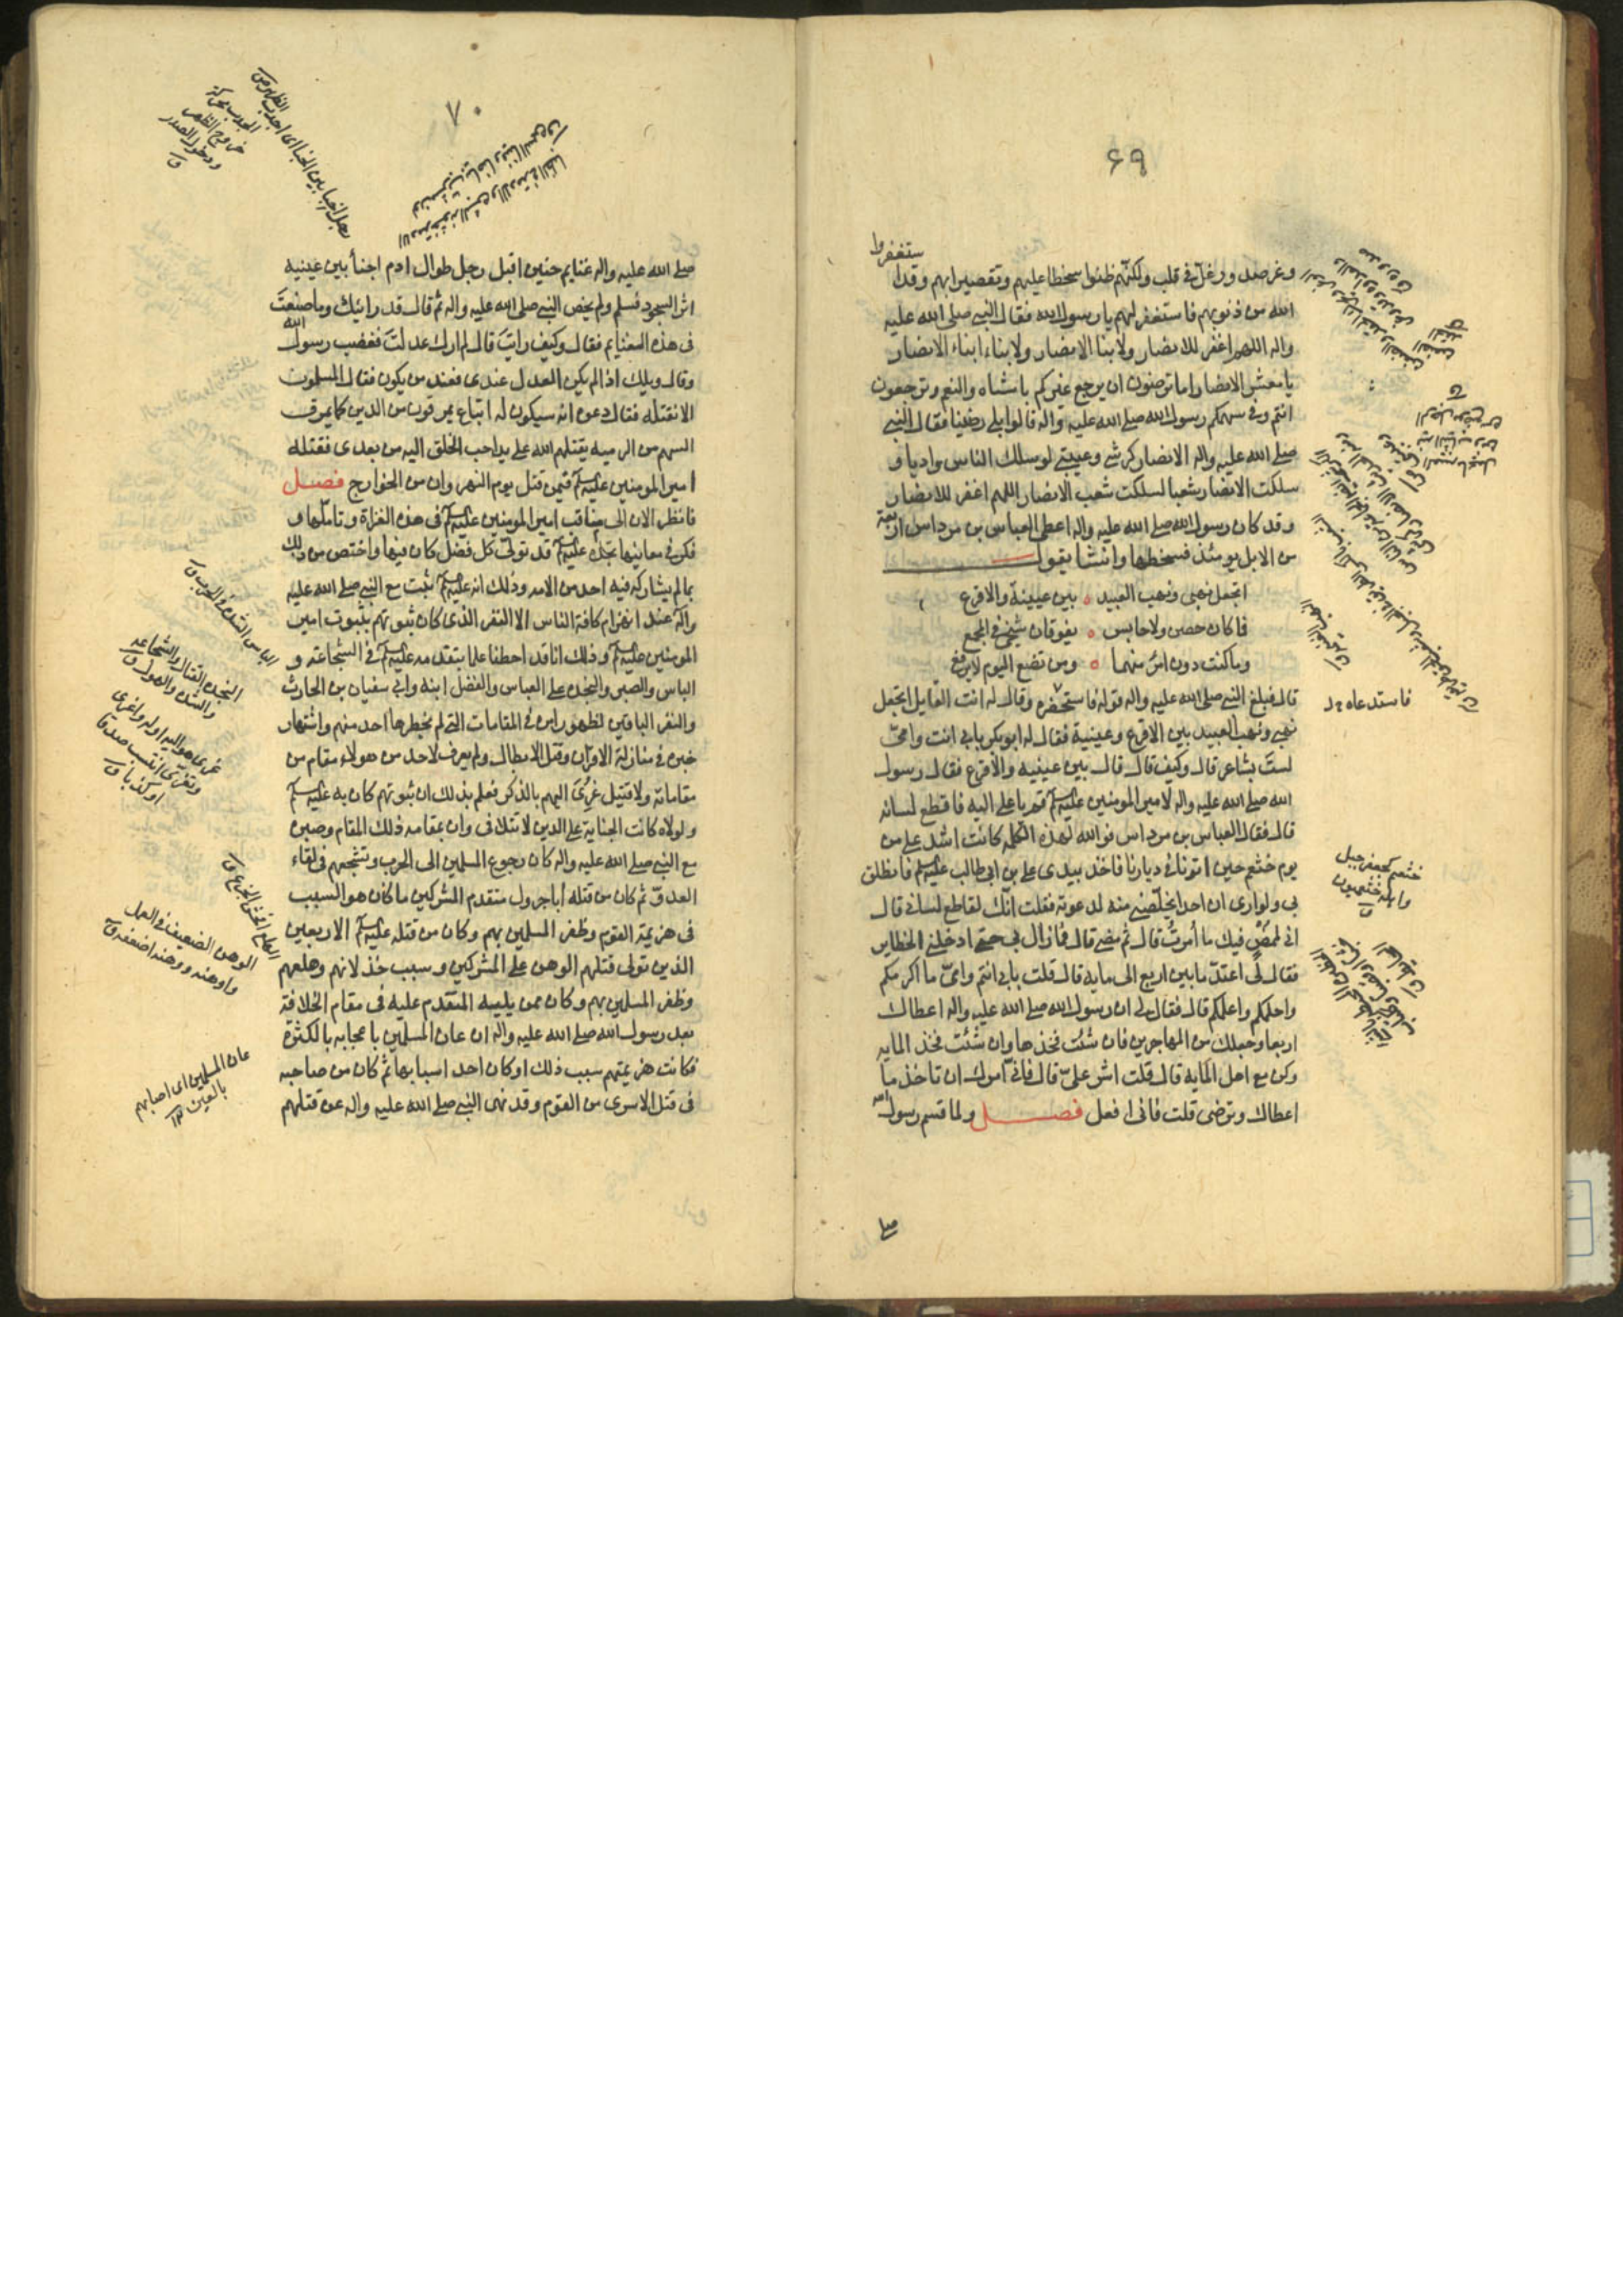 ۶۹
يستغفروا
وغر صدور وغل فى قلب ولكنهم ظنوا سخطا عليهم وتقصيرا بهم وقد
الله من ذنوبهم فاستغفر لهم يا رسول الله فقال النبي صلى الله عليه
واله اللهم اغفر للانصار ولابنا الانصار ولابناء ابناء الانصار
يا معشر الانصار اما ترضون ان يرجع غيركم بالشاه والنعم وترجعون
انتم وفى سهمكم رسول الله صلى الله عليه واله قالوا بلى رضينا فقال النبي
صلى الله عليه واله الانصار كرشى وعيبتى لو سلك الناس واديا و
سلكت الانصار شعبا لسلكت شعب الانصار اللهم اغفر للانصار
وقد كان رسول الله صلى الله عليه واله اعطى العباس بن مرداس اربعة
من الابل يومئذ فسخطها وانشا يقول
اتجعل نهبى ونهب العبيد بين عيينة والاقرع
فما كان حصن ولا حابس يفوقان شيخى فى المجمع
وما كنت دون امرئ منهما ومن تضع اليوم لا يرفع
قال فبلغ النبي صلى الله عليه واله قوله فاستحضره وقال له انت القايل اتجعل
فاستدعاه
نهبى ونهب العبيد بين الاقرع وعيينة فقال له ابو بكر بابى انت وامى
لست بشاعر قال وكيف قال قال بين عيينه والاقرع فقال رسول
الله صلى الله عليه واله لامير المومنين عليه السلم قم يا على اليه فاقطع لسانه
قال فقال العباس بن مرداس فوالله لهذه الكلمه كانت اشد على من
يوم خثعم حين اتونا فى ديارنا فاخذ بيدى على بن ابى طالب عليه السلم فانطلق
خثعم كجعفر جبل
واهله خثعميون
بى ولو ارى ان احدا يخلصنى منه لدعوته فقلت انك لقاطع لسانى قال
انى لممض فيك ما امرت قال ثم مضى قال فما زال بى حتى ادخلنى الحظاير
فقال لى اعتد ما بين اربع الى مايه قال قلت بابى انتم وامى ما اكرمكم
واحلمكم واعلمكم قال فقال لى ان رسول الله صلى الله عليه واله اعطاك
اربعا وجعلك من المهاجرين فان شئت فخذها وان شئت فخذ المايه
وكن مع اهل المايه قال قلت اشر على قال فانى امرك ان تاخذ ما
اعطاك وترضى قلت فانى افعل فصل ولما قسم رسول الله
صلى
۷۰
صلى الله عليه واله غنايم حنين اقبل رجل طوال ادم اجنأ بين عينيه
اثر السجود فسلم ولم يخص النبي صلى الله عليه واله ثم قال قد رايتك وما صنعت
فى هذه الغنايم فقال وكيف رايت قال لم ارك عدلت فغضب رسول الله
وقال ويلك اذا لم يكن العدل عندى فعند من يكون فقال المسلمون
الا نقتله فقال دعوه انه سيكون له اتباع يمرقون من الدين كما يمرق
السهم من الرميه يقتلهم الله على يد احب الخلق اليه من بعدى فقتله
امير المومنين عليه السلم فيمن قتل يوم النهروان من الخوارج فصل
فانظر الان الى مناقب امير المومنين عليه السلم فى هذه الغزاة وتاملها و
فكر فى معانيها تجده عليه السلم قد تولى كل فضل كان فيها واختص من ذلك
بما لم يشاركه فيه احد من الامه وذلك انه عليه السلم ثبت مع النبي صلى الله عليه
واله عند انهزام كافة الناس الا النفر الذى كان ثبوتهم بثبوت امير
المومنين عليه السلم وذلك انا قد احطنا علما بتقدمه عليه السلم فى الشجاعه و
الباس والصبر والنجده على العباس والفضل ابنه وابى سفيان بن الحارث
والنفر الباقين لظهور امره فى المقامات التى لم يحضرها احد منهم واشتهار
خبره فى منازلة الاقران وقتل الابطال ولم يعرف لاحد من هولاء مقام من
مقاماته ولا قتيل عزى اليهم بالذكر فعلم بذلك ان ثبوتهم كان به عليه السلم
ولولاه كانت الجناية على الدين لا تتلافى وان بمقامه ذلك المقام وصبره
مع النبي صلى الله عليه واله كان رجوع المسلمين الى الحرب وتشجعهم فى لقاء
العدو ثم كان من قتله ابا جرول متقدم المشركين ما كان هو السبب
فى هزيمة القوم وظفر المسلمين بهم وكان من قتله عليه السلم الاربعين
الذين تولى قتلهم الوهن على المشركين وسبب خذلانهم وهلعهم
وظفر المسلمين بهم وكان من بليه المتقدم عليه فى مقام الخلافة
بعد رسول الله صلى الله عليه واله ان عان المسلمين باعجابه بالكثرة
فكانت هزيمتهم بسبب ذلك او كان احد اسبابها ثم كان من صاحبه
فى قتل الاسرى من القوم وقد نهى النبي صلى الله عليه واله عن قتلهم
الجدب محركة
خروج الظهر
ودخول الصدر
ق
الباس الشدة فى الحرب ق
النجده القتال والشجاعه
والشده والهول ق
الوهن الضعيف فى العمل
واوهنه ووهنه اضعفه ق
عان المسلمين اى اصابهم
بالعين ١٢